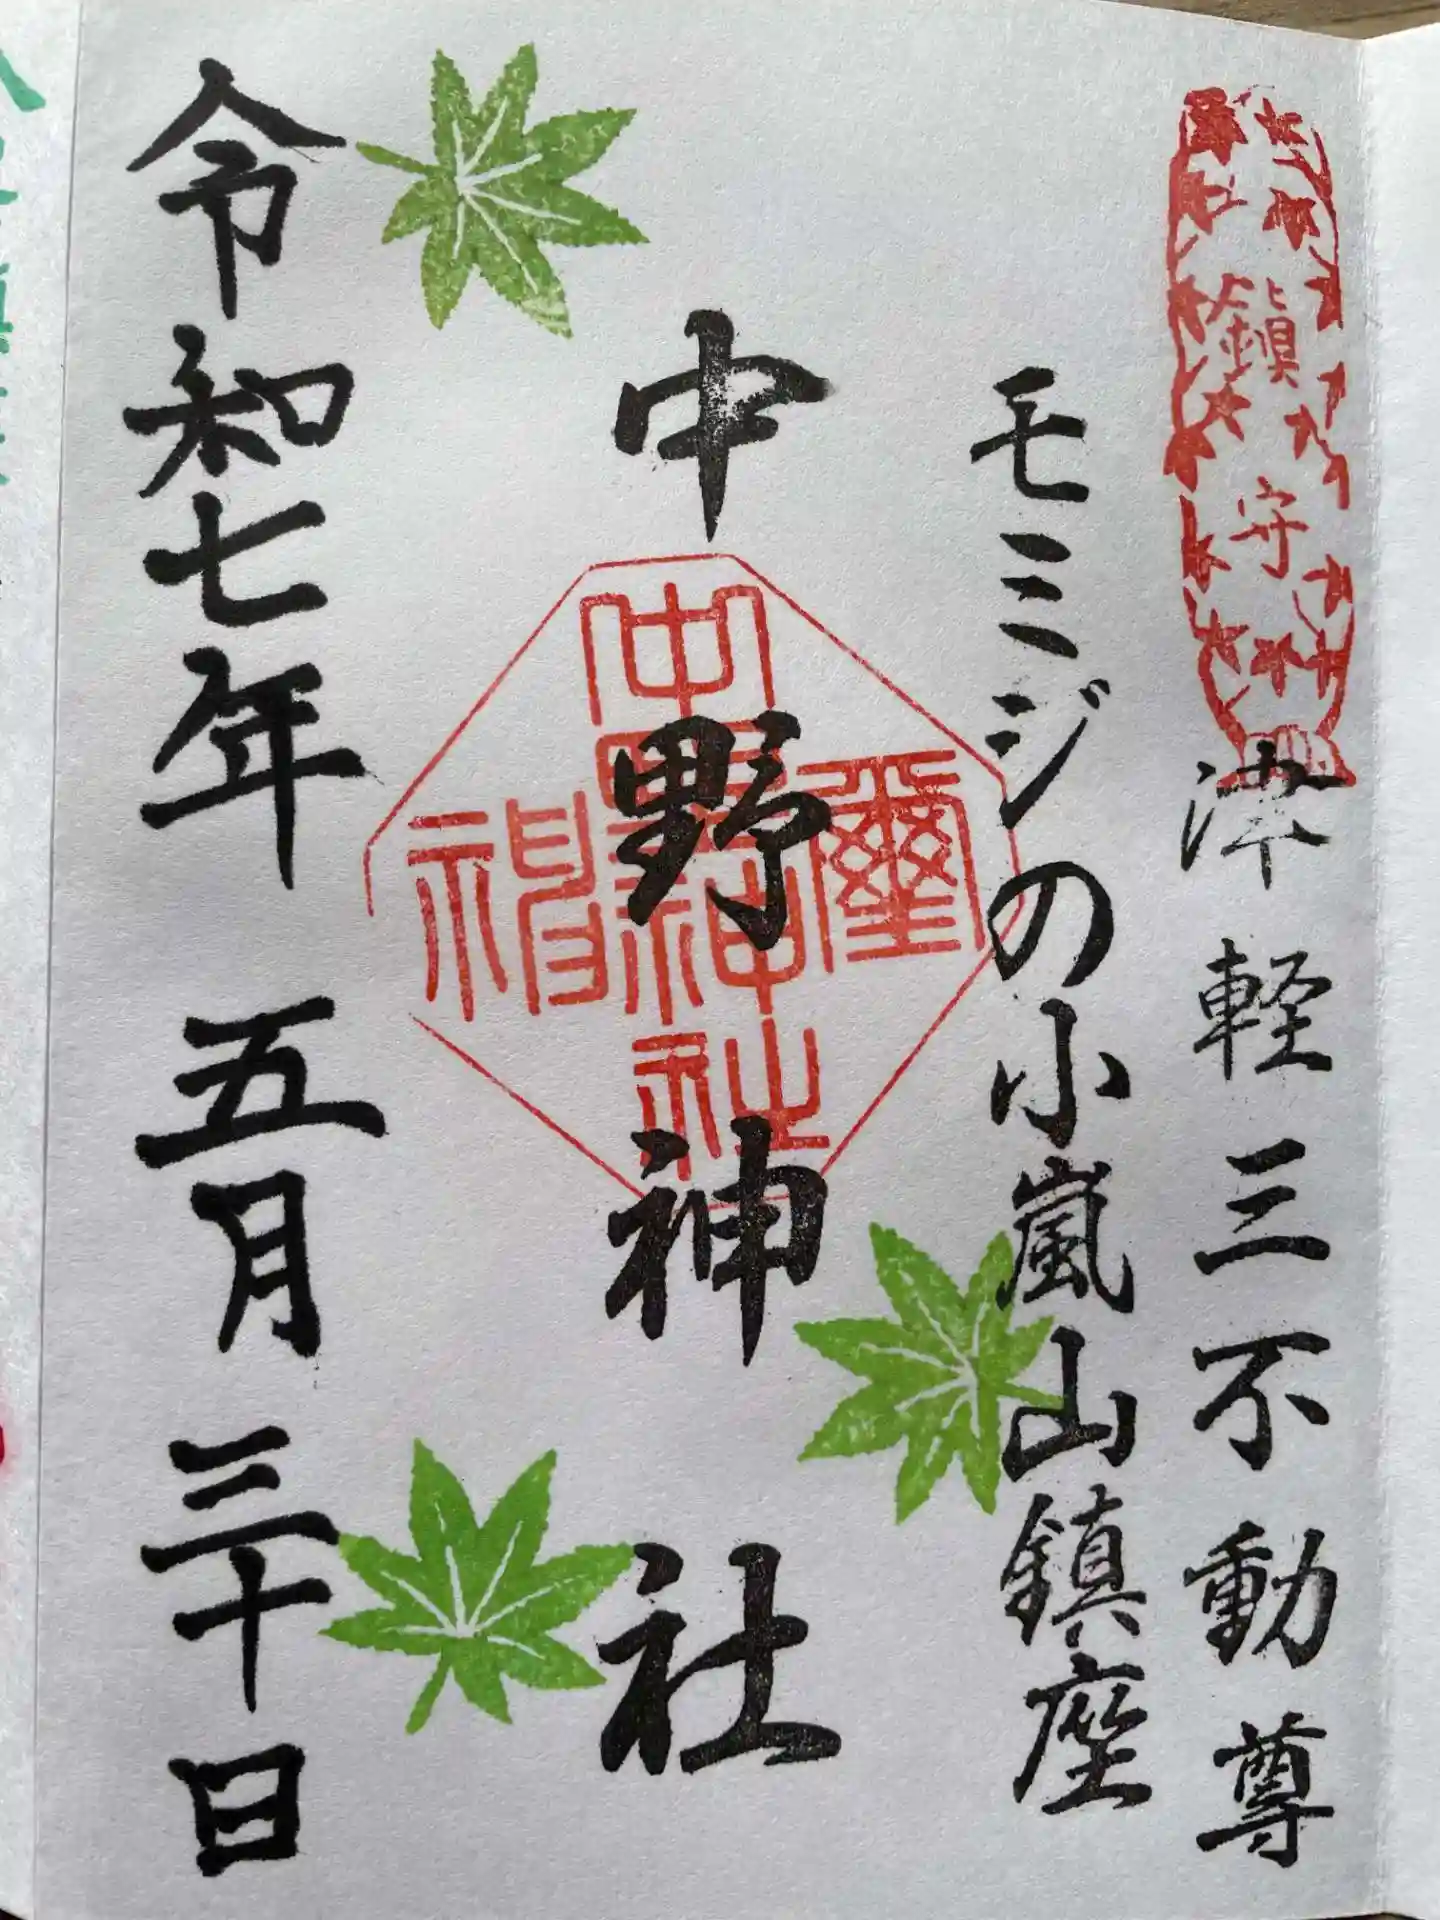 鎮守
津軽三不動尊
モミジの小嵐山鎮座
中野神社
中野神社
神璽
令和七年 五月 三十日